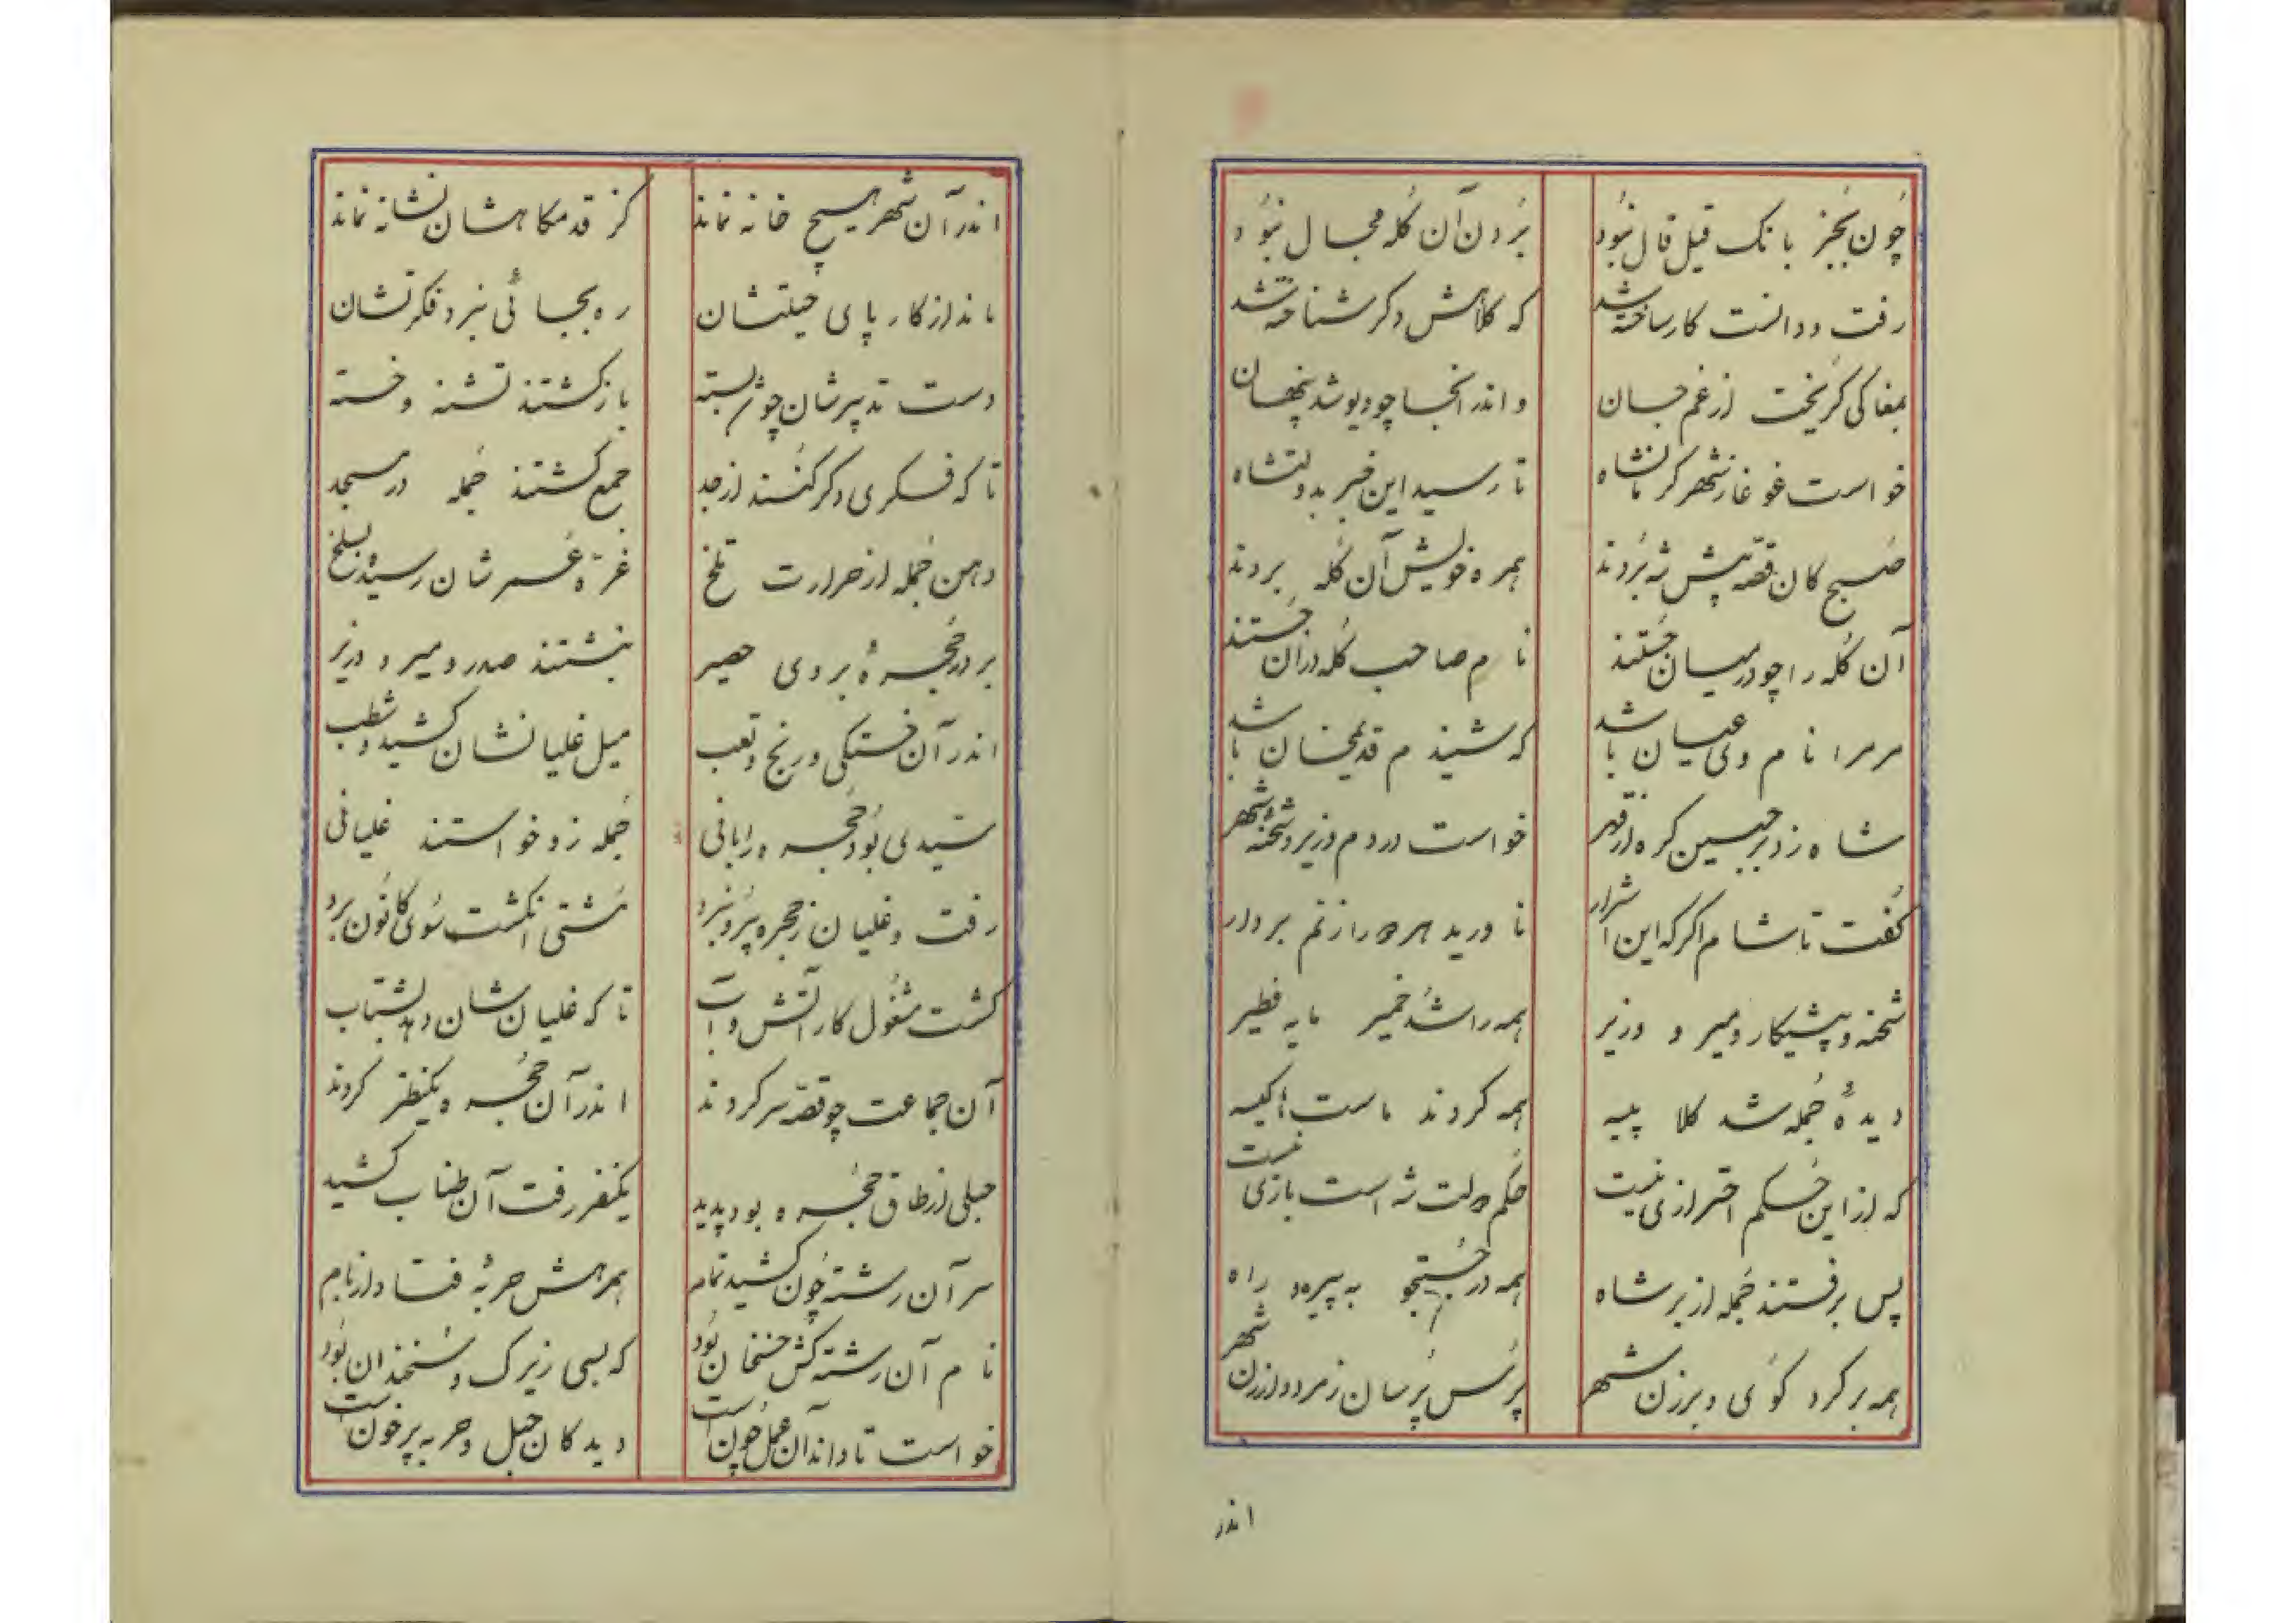 چون بجز بانک قیل قال نبود بردن آن کله مجال نبود
رفت و دانست کار ساخته شد که کلاهش دکر شناخته شد
بمغاکی کریخت از غم جان واندر انجا چو دیو شد پنهان
خواست غوغا ز شهر کرمانشاه تا رسید این خبر بدولتشاه
صبح کان قصه پیش شه بردند همره خویش آن کله بردند
آن کله را چو در میان جستند نام صاحب کله در آن جستند
مر مرا نام وی عیان باشد که شنیدم قدیمخان باشد
شاه زد بر جبین کره از قهر خواست در دم وزیر و شحنه شهر
کفت تا شام اکر که این اشرار ناورید هر دو را زنم بر دار
شحنه و پیشکار و میر و وزیر همه را شد خمیر مایه فطیر
دیدهٔ جمله شد کلا پیسه همه کردند ماست‌ها کیسه
که از این حکم احترازی نیست حکم دولتشه است بازی نیست
پس برفتند جمله از بر شاه همه در جستجو به پیره راه
همه بر کرد کوی و برزن شهر پرس پرسان ز مرد و از زن شهر
اندر
اندر آن شهر هیچ خانه نماند کز قدمکاهشان نشانه نماند
ماند از کار پای حیلتشان ره بجائی نبرد فکرتشان
دست تدبیرشان چو شد بسته بازکشتند تشنه و خسته
تا که فکری دکر کنند از جد جمع کشتند جمله در مسجد
دهن جمله از حرارت تلخ غرّه عمرشان رسیده بسلخ
بر در حجرهٔ بروی حصیر بنشستند صدر و میر و وزیر
اندر آن خستکی و رنج و تعب میل غلیانشان کشید و طلب
سیدی بود حجره را بانی جمله زو خواستند غلیانی
رفت و غلیان ز حجره برد و نبرد مشتی انکشت سوی کانون برد
کشت مشغول کار آتش و آب تا که غلیانشان دهد بشتاب
آن جماعت چو قصه سر کردند اندر آن حجره یکنظر کردند
حبلی از طاق حجره بود پدید یکنفر رفت آن طناب کشید
سر آن رشته چون کشید تمام همرهش حربهٔ فتاد از بام
نام آن رشته کش حسنخان بود که بسی زیرک و سخندان بود
خواست تا داند آن عمل چون است دید کان حبل و حربه پر خون است